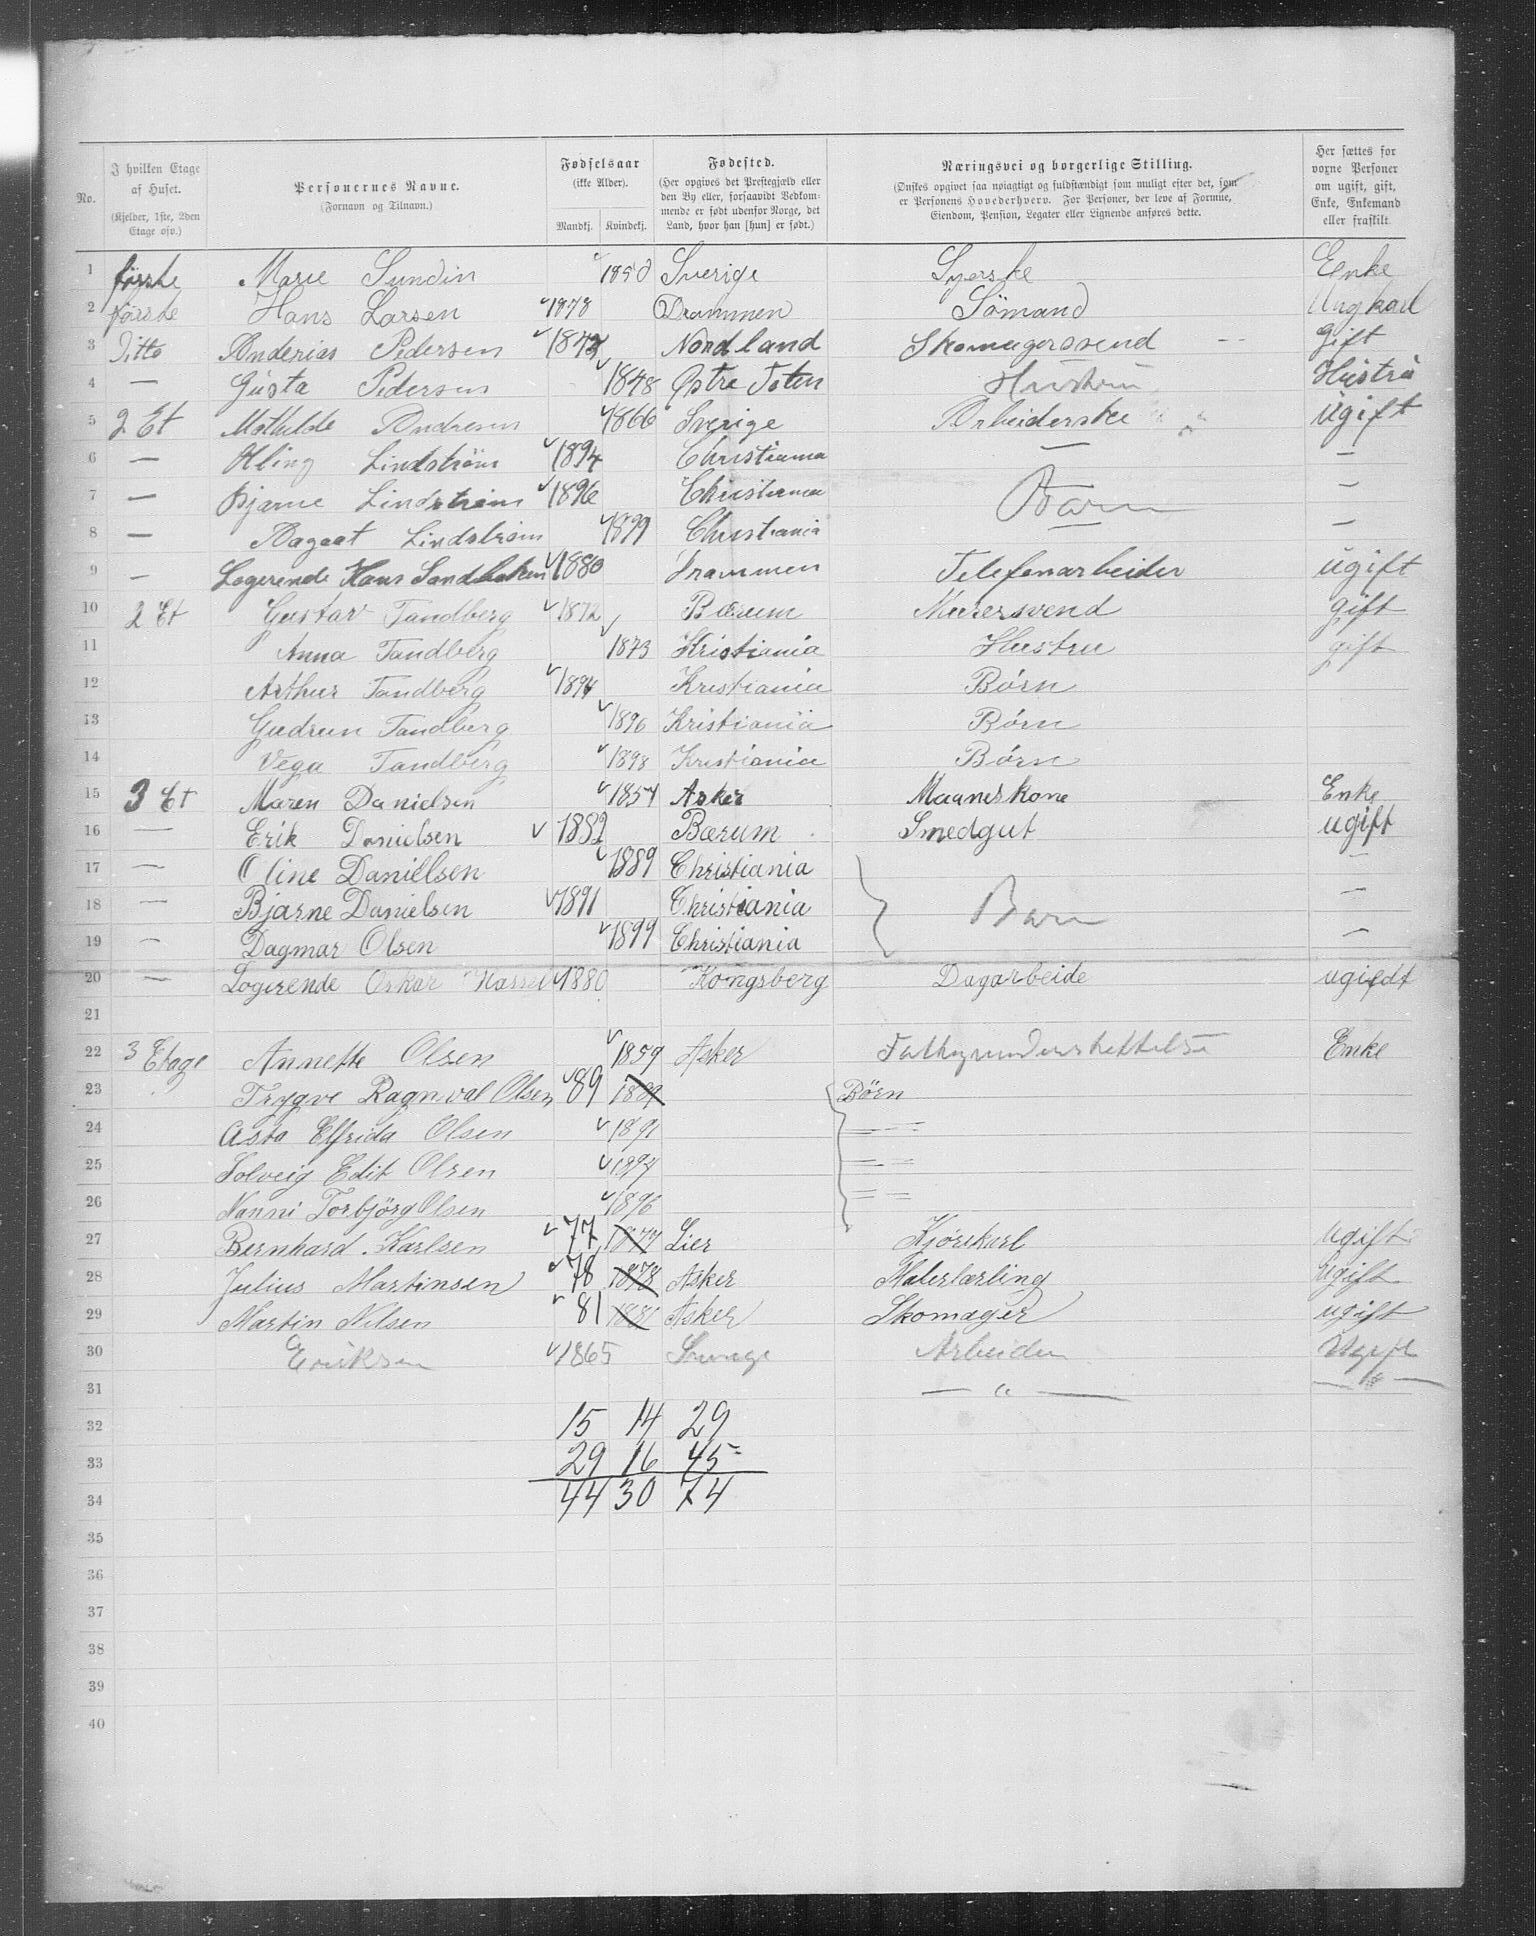 No. | I hvilken Etage af Huset. (Kjelder, 1ste, 2den Etage osv.) | Personernes Navne. (Fornavn og Tilnavn.) | Fødselsaar (ikke Alder). Mandkj. Kvindekj. | Fødested. (Her opgives det Prestegjæld eller den By eller, forsaavidt Vedkommende er født udenfor Norge, det Land, hvor han [hun] er født.) | Næringsvei og borgerlige Stilling. (Ønskes opgivet saa nøiagtigt og fuldstændigt som muligt efter det, som er Personens Hovederhverv. For Personer, der leve af Formue, Eiendom, Pension, Legater eller Lignende anføres dette. | Her sættes for voxne Personer om ugift, gift, Enke, Enkemand eller fraskilt
1 første Marie Sundin 1850 Sverige Syerske Enke
2 første Hans Larsen 1878 Drammen Sömand Ungkarl
3 Ditto Anderias Pedersen 1842 Nordland Skomagersvend gift
4 — Gusta Pedersen 1848 Østre Toten Hustru Hustru
5 2 Et Mathilde Andresen 1866 Sverige Arbeiderske ugift
6 — Lindstrøm 1894 Christiania — —
7 — Bjarne Lindstrøm 1896 Christiania Barn —
8 — Lindstrøm 1899 Christiania —
9 — Logerende Hans Sandbaken 1880 Drammen Telefonarbeider ugift
10 2 Et Gustav Tandberg 1872 Bærum Murersvend gift
11 Anna Tandberg 1873 Kristiania Hustru gift
12 Arthur Tandberg 1894 Kristiania Børn
13 Gudrun Tandberg 1896 Kristiania Børn
14 Vega Tandberg 1898 Kristiania Børn
15 3 Et Maren Danielsen 1857 Asker Maaneskone Enke
16 — Erik Danielsen 1882 Bærum Smedgut ugift
17 — Oline Daniellsen 1889 Christiania —
18 — Bjarne Danielsen 1891 Christiania Barn —
19 — Dagmar Olsen 1899 Christiania —
20 — Logerende Oskar Hassel 1880 Kongsberg Dagarbeide ugiedt
21
22 3 Etage Annette Olsen 1859 Asker Enke
23 Trygve Ragnval Olsen 89 1889 Børn
24 Asta Elfrida Olsen 1891 — —
25 Solveig Edit Olsen 1894 — —
26 Nanni Torbjörg Olsen 1896 — —
27 Bernhard Karlsen 77 1877 Lier Kjørekarl ugift
28 Julius Martinsen 78 1878 Asker Malerlærling Ugift
29 Martin Nilsen 81 1881 Asker Skomager ugift
30 Eriksen 1865 Arbeider Ugift
31 — " — — " —
32 15 14 29
33 29 16 45
34 44 30 74
35
36
37
38
39
40